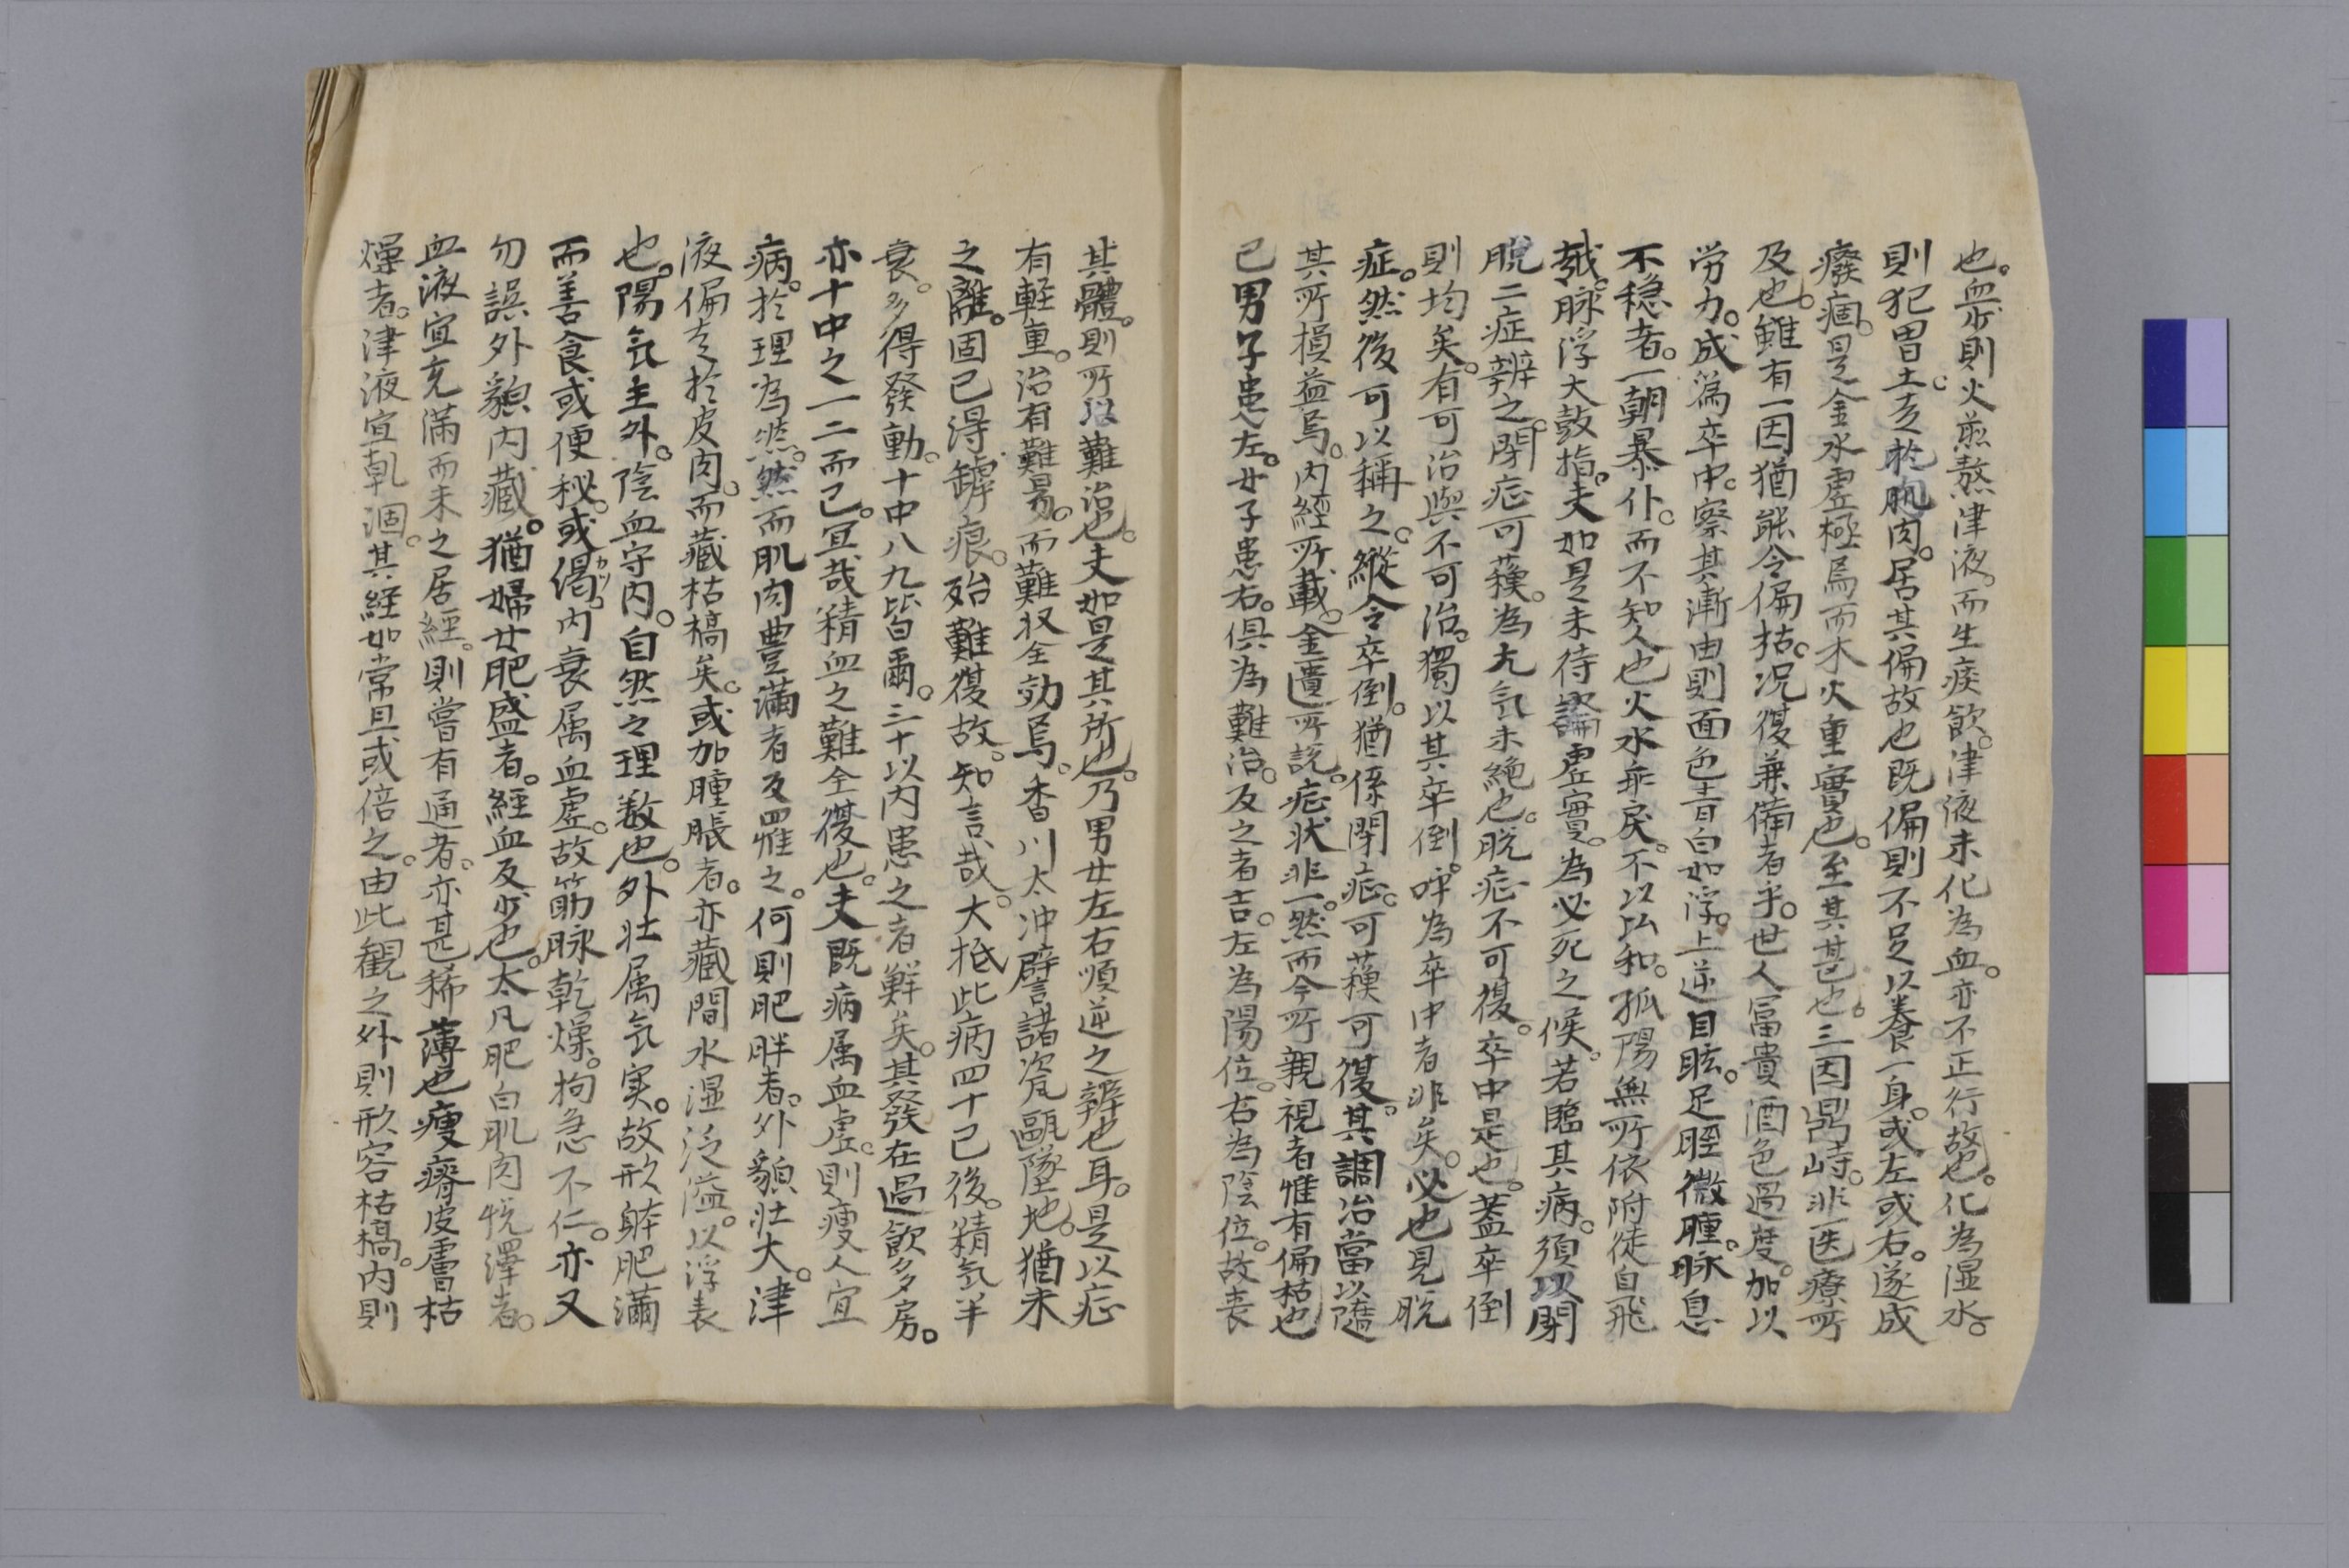 也。血少則火煎熬津液。而生痰飲。津液未化為血。亦不正行故也。化為湿水。
則犯胃土。走於肌肉。居其偏故也既偏則不足以養一身。或左或右。遂成
癈痼。是金水虚極焉而木火重實也。至其甚也。三因鼎峙。非医療所
及也。雖有一因猶能令偏枯。况復兼備者乎。世人冨貴酒色過度。加以
労力。成為卒中。察其漸由則面色青白如浮。上逆目眩。足脛微腫。脉息
不穏者。一朝暴仆。而不知人也火水乖戻。不以公和。孤陽無所依附徒自飛
越。脉浮大鼓指。夫如是未待論虚實。為必死之候。若臨其病。須以閉
脱二症辨之。閉症可薬。為元気未絶也。脱症不可復。卒中是也。蓋卒倒
則均矣。有可治與不可治。獨以其卒倒。呼為卒中者非矣。必也見脱
症。然後可以稱之。縦令卒倒。猶係閉症。可薬可復。其調治當以隨
其所損益焉。内經所載。金匱所説。症状非一。然而今所親視者惟有偏枯也
已男子患左。女子患右。倶為難治。反之者吉。左為陽位。右為陰位。故喪
其體。則所以難治也。夫如是其所也。乃男女左右順逆之辨也耳。是以症
有軽重。治有難易。而難収全効焉。香川太冲譬諸瓷甌墜地。猶未
之離。固已得罅痕。殆難復故。知言哉。大抵此病四十已後。精気半
衰。多得發動。十中八九皆爾。三十以内患之者鮮矣。其發在過飲多房。
亦十中之一二而已。宜哉精血之難全復也。夫既病属血虚。則痩人宜
病。於理為然。然而肌肉豊満者反罹之。何則肥胖者。外貌壮大。津
液偏走於皮肉。而藏枯槁矣。或加腫脹者。亦藏間水湿泛溢。以浮表
也。陽気主外。陰血守内。自然之理数也。外壮属気実。故形躰肥満
而善食或便秘。或渇。内衰属血虚。故筋脉乾燥。拘急不仁。亦又
勿誤外貌内藏。猶婦女肥盛者。經血反少也。太凡肥白肌肉悦澤者。
血液宜充満而未之居經。則嘗有通者。亦甚稀薄也痩瘠皮膚枯
燥者。津液宜乾涸。其経如常且或倍之。由此観之外則形容枯槁。内則